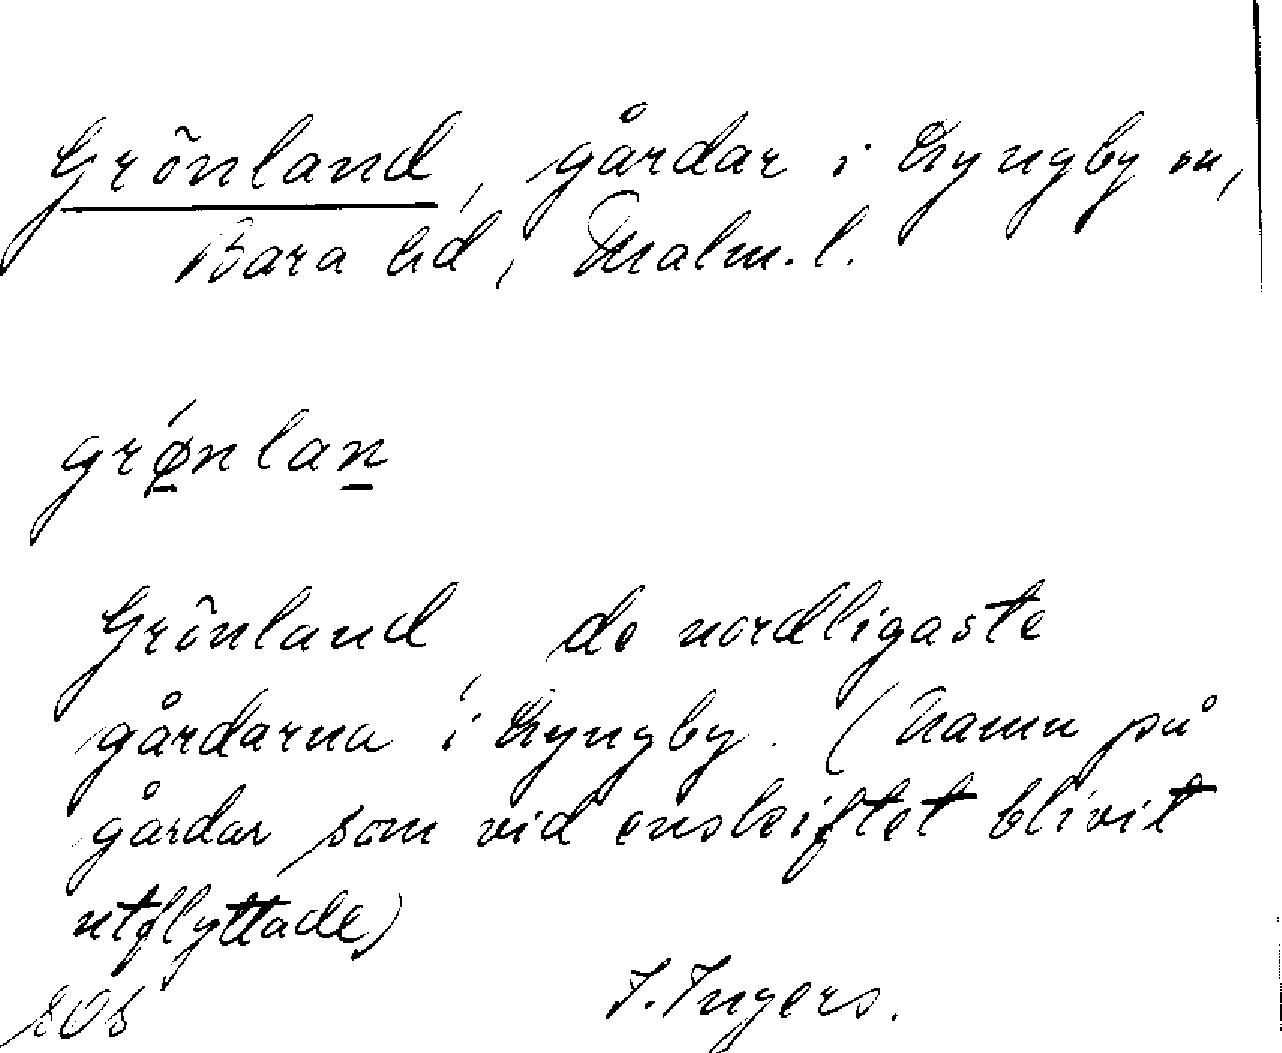 Grönland, gårdar i Lyngby sn,
Bara hd, Malm.l.
grǿnlan
Grönland, de nordligaste
gårdarna i Lyngby. (Namn på
gårdar som vid enskiftet blivit
utflyttade)
I. Ingers.